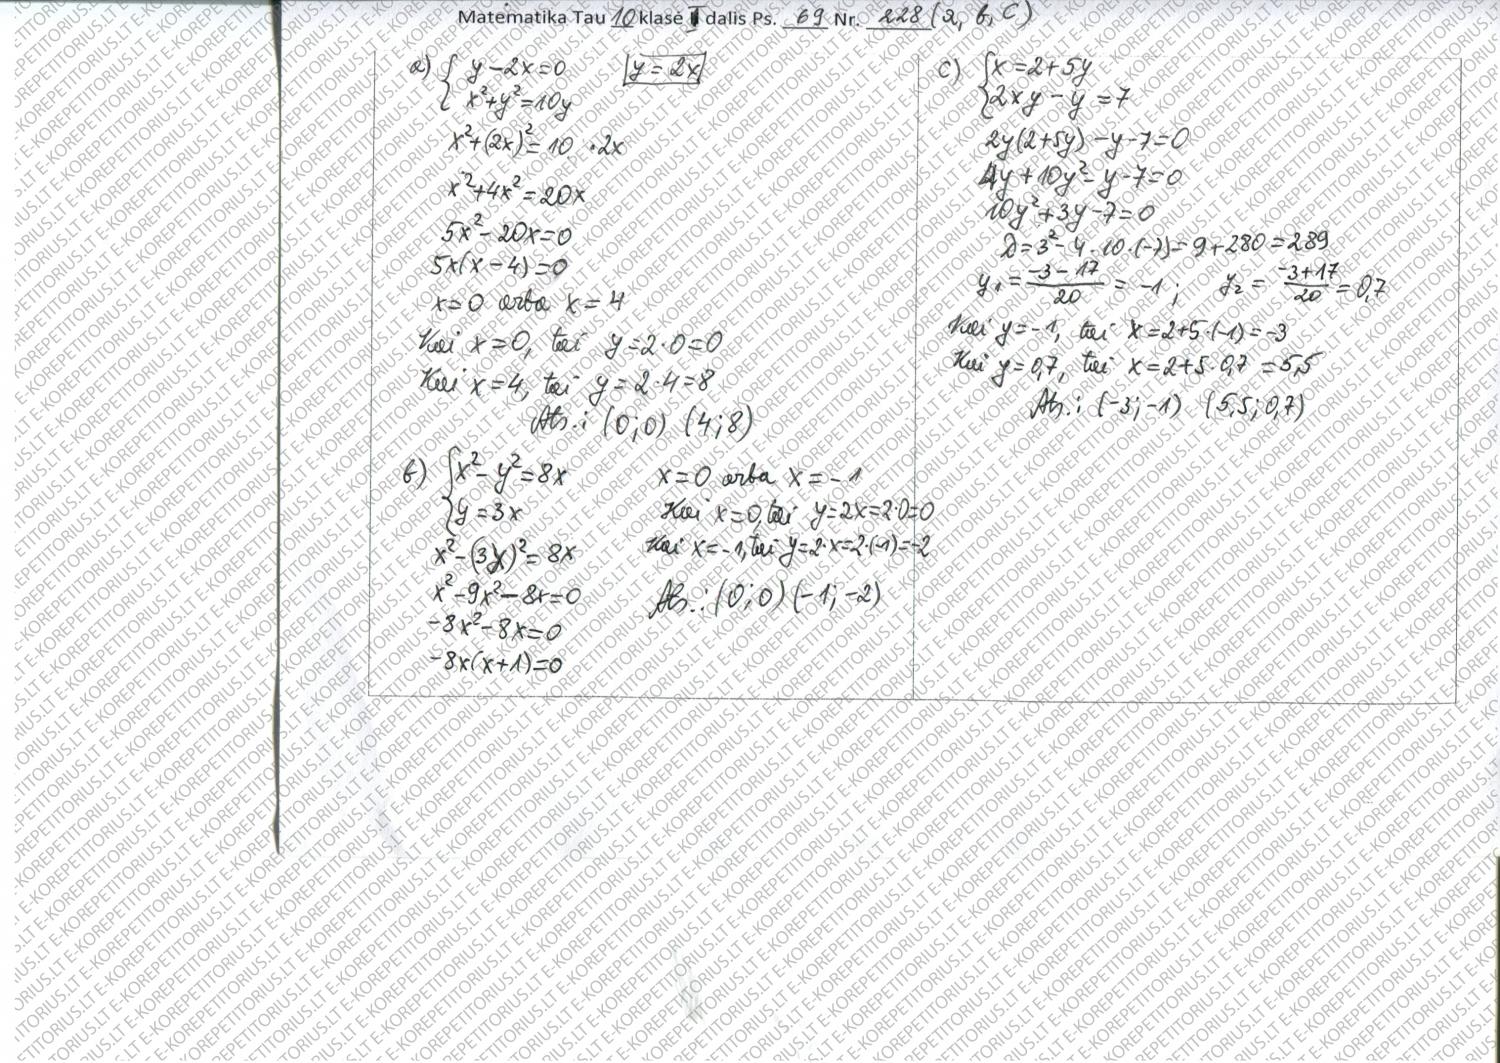 Matematika Tau 10 klasė II dalis Ps. 69 Nr. 228 (a, b, c)
a) { y - 2x = 0
x² + y² = 10y
y = 2x
x² + (2x)² = 10 · 2x
x² + 4x² = 20x
5x² - 20x = 0
5x(x - 4) = 0
x = 0 arba x = 4
Kai x = 0, tai y = 2·0 = 0
Kai x = 4, tai y = 2·4 = 8
Ats.: (0;0) (4;8)
b) { x² - y² = 8x
y = 3x
x² - (3x)² = 8x
x² - 9x² - 8x = 0
-8x² - 8x = 0
-8x(x + 1) = 0
x = 0 arba x = -1
Kai x = 0, tai y = 2x = 2·0 = 0
Kai x = -1, tai y = 2·x = 2·(-1) = -2
Ats.: (0;0) (-1; -2)
c) { x = 2 + 5y
2xy - y = 7
2y(2 + 5y) - y - 7 = 0
4y + 10y² - y - 7 = 0
10y² + 3y - 7 = 0
D = 3² - 4·10·(-7) = 9 + 280 = 289
y₁ = (-3 - 17)/20 = -1; y₂ = (-3 + 17)/20 = 0,7
Kai y = -1, tai x = 2 + 5·(-1) = -3
Kai y = 0,7, tai x = 2 + 5·0,7 = 5,5
Ats.: (-3; -1) (5,5; 0,7)
E-KOREPETITORIUS.LT